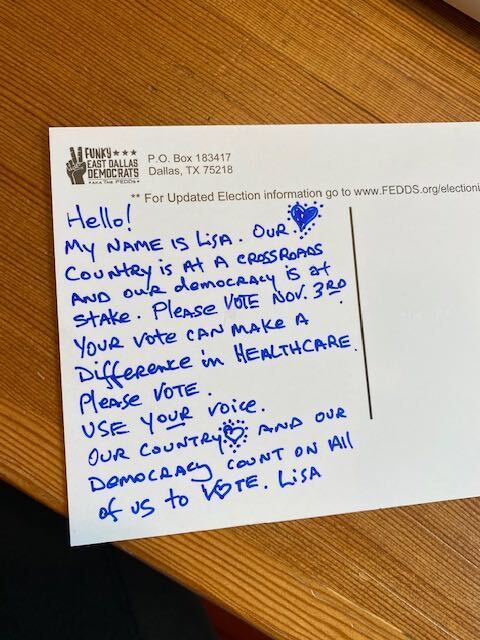 FUNKY ★★★
EAST DALLAS
DEMOCRATS
★ AKA THE FEDDs ★
P.O. Box 183417
Dallas, TX 75218
** For Updated Election information go to www.FEDDS.org/electioni
Hello!
MY NAME IS LISA. OUR
COUNTRY is AT A CROSSROADS
AND OUR democracy is at
STAKE. Please VOTE NOV. 3RD
YOUR VOTE CAN MAKE A
Difference in HEALTHCARE.
Please VOTE.
USE YOUR voice.
OUR COUNTRY AND OUR
DEMOCRACY COUNT ON All
of US to VOTE. LiSA